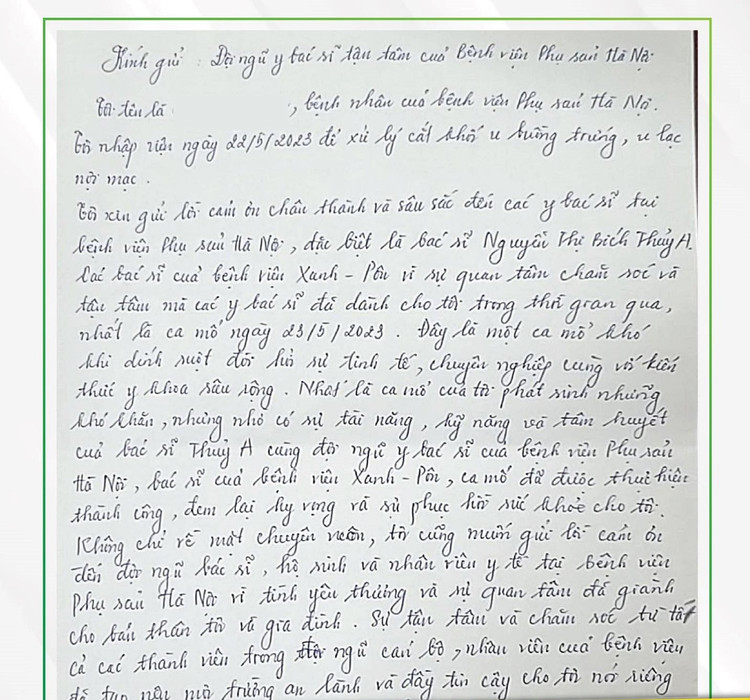 Kính gửi: Đội ngũ y bác sĩ tận tâm của Bệnh viện Phụ sản Hà Nội.
Tôi tên là , bệnh nhân của bệnh viện Phụ sản Hà Nội.
Tôi nhập viện ngày 22/5/2023 để xử lý cắt khối u buồng trứng, u lạc
nội mạc.
Tôi xin gửi lời cảm ơn chân thành và sâu sắc đến các y bác sĩ tại
bệnh viện Phụ sản Hà Nội, đặc biệt là bác sĩ Nguyễn Thị Bích Thủy A.
Các bác sĩ của bệnh viện Xanh - Pôn vì sự quan tâm chăm sóc và
tận tâm mà các y bác sĩ đã dành cho tôi trong thời gian qua,
nhất là ca mổ ngày 23/5/2023. Đây là một ca mổ khó
khi dính ruột đòi hỏi sự tinh tế, chuyên nghiệp cùng với kiến
thức y khoa sâu rộng. Nhất là ca mổ của tôi phát sinh những
khó khăn, nhưng nhờ có sự tài năng, kỹ năng và tâm huyết
của bác sĩ Thuỷ A cùng đội ngũ y bác sĩ của bệnh viện Phụ sản
Hà Nội, bác sĩ của bệnh viện Xanh - Pôn, ca mổ đã được thực hiện
thành công, đem lại hy vọng và sự phục hồi sức khỏe cho tôi.
Không chỉ về mặt chuyên môn, tôi cũng muốn gửi lời cảm ơn
đến đội ngũ bác sĩ, hộ sinh và nhân viên y tế tại Bệnh viện
Phụ sản Hà Nội vì tình yêu thương và sự quan tâm đã giành
cho bản thân tôi và gia đình. Sự tận tâm và chăm sóc từ tất
cả các thành viên trong đội ngũ cán bộ, nhân viên của bệnh viện
đã tạo nên môi trường an lành và đầy tin cậy cho tôi nói riêng